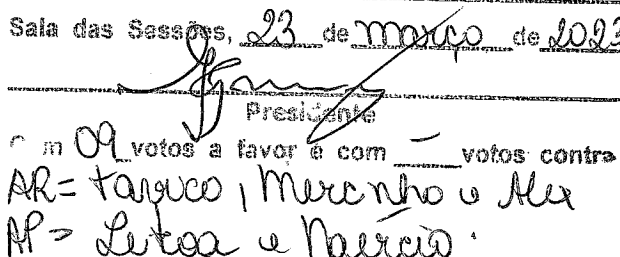 Sala das Sessões, 23 de março de 2023
Presidente
Com 09 votos a favor e com — votos contra
AR = , Mercinho e Alex
AP = e